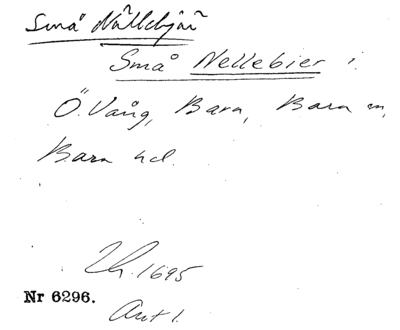 Små Nällebjär
Små Nellebier i
Ö. Vång, Bara, Bara sn,
Bara hd.
Lh. 1695
Nr 6296.
Akt 1.